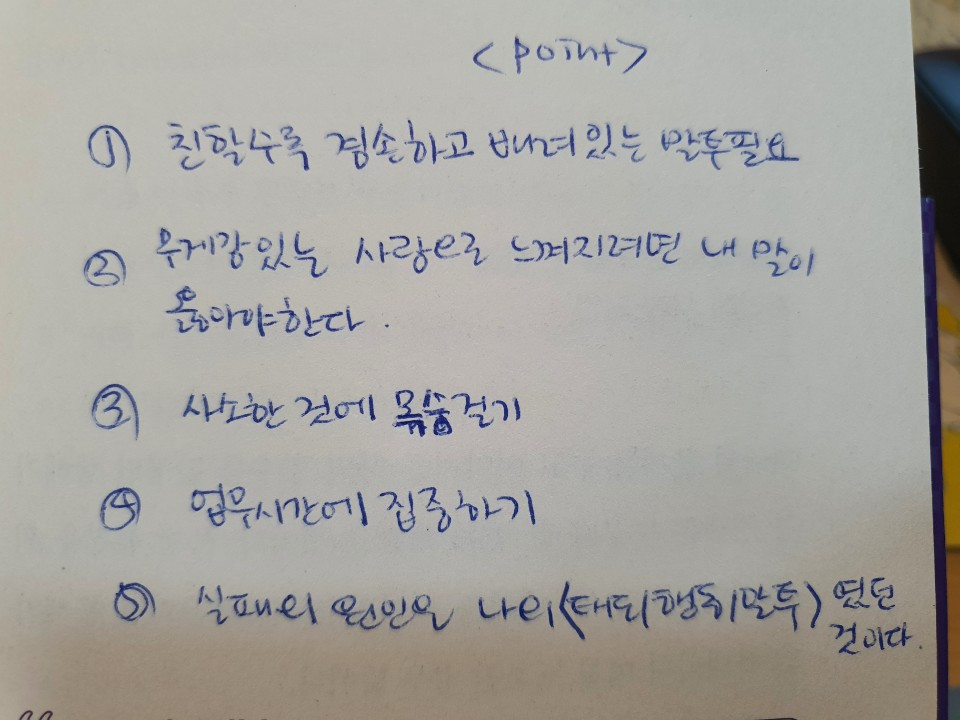 <point>
① 친할수록 겸손하고 배려있는 말투필요
② 무게감있는 사람으로 느껴지려면 내 말이
옳아야한다.
③ 사소한 것에 목숨걸기
④ 업무시간에 집중하기
⑤ 실패의 원인은 나의(태도/행동/말투) 였던
것이다.